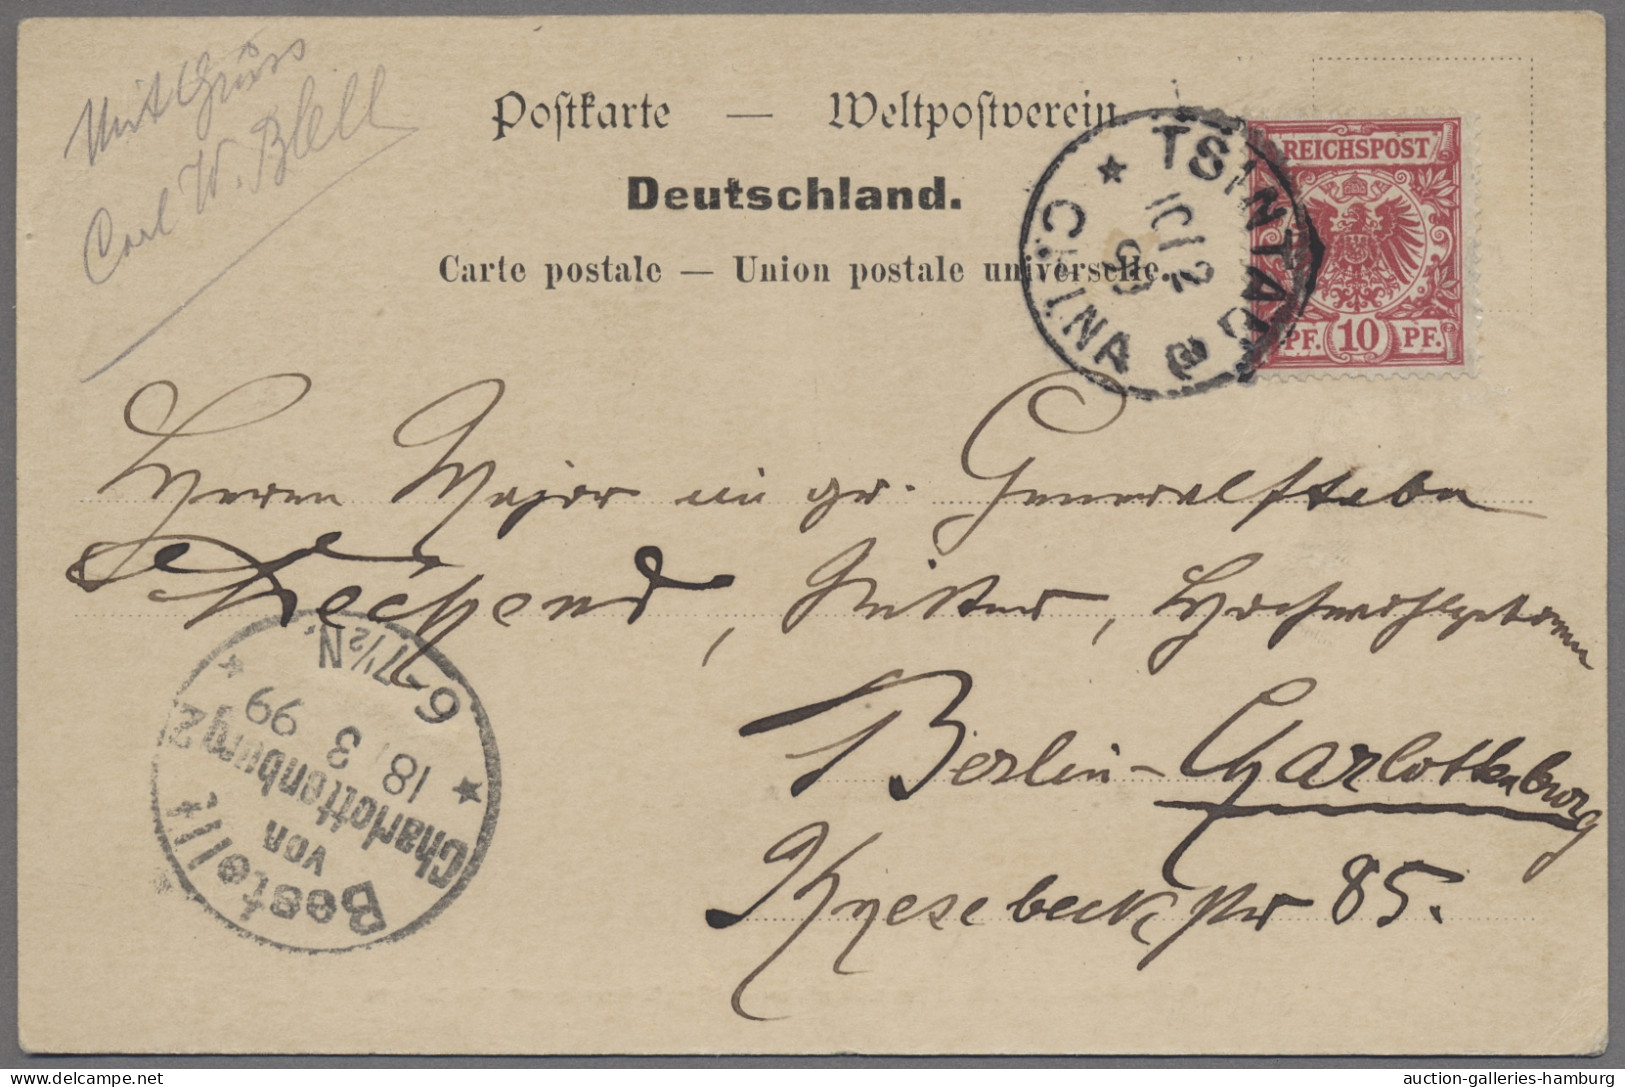 Mit Gruss
Carl W. Blell
Postkarte — Weltpostverein
Deutschland.
Carte postale — Union postale universelle.
TSINTAU
10/2
99
CHINA
REICHSPOST
PF. 10 PF.
Herrn Major im gr. Generalstabe
, Ritter, Hochwohlgeboren
Berlin-Charlottenburg
Knesebeckstr 85.
Bestellt
von
Charlottenburg 2
18/3 99
6-7½N.
auction-galleries-hamburg